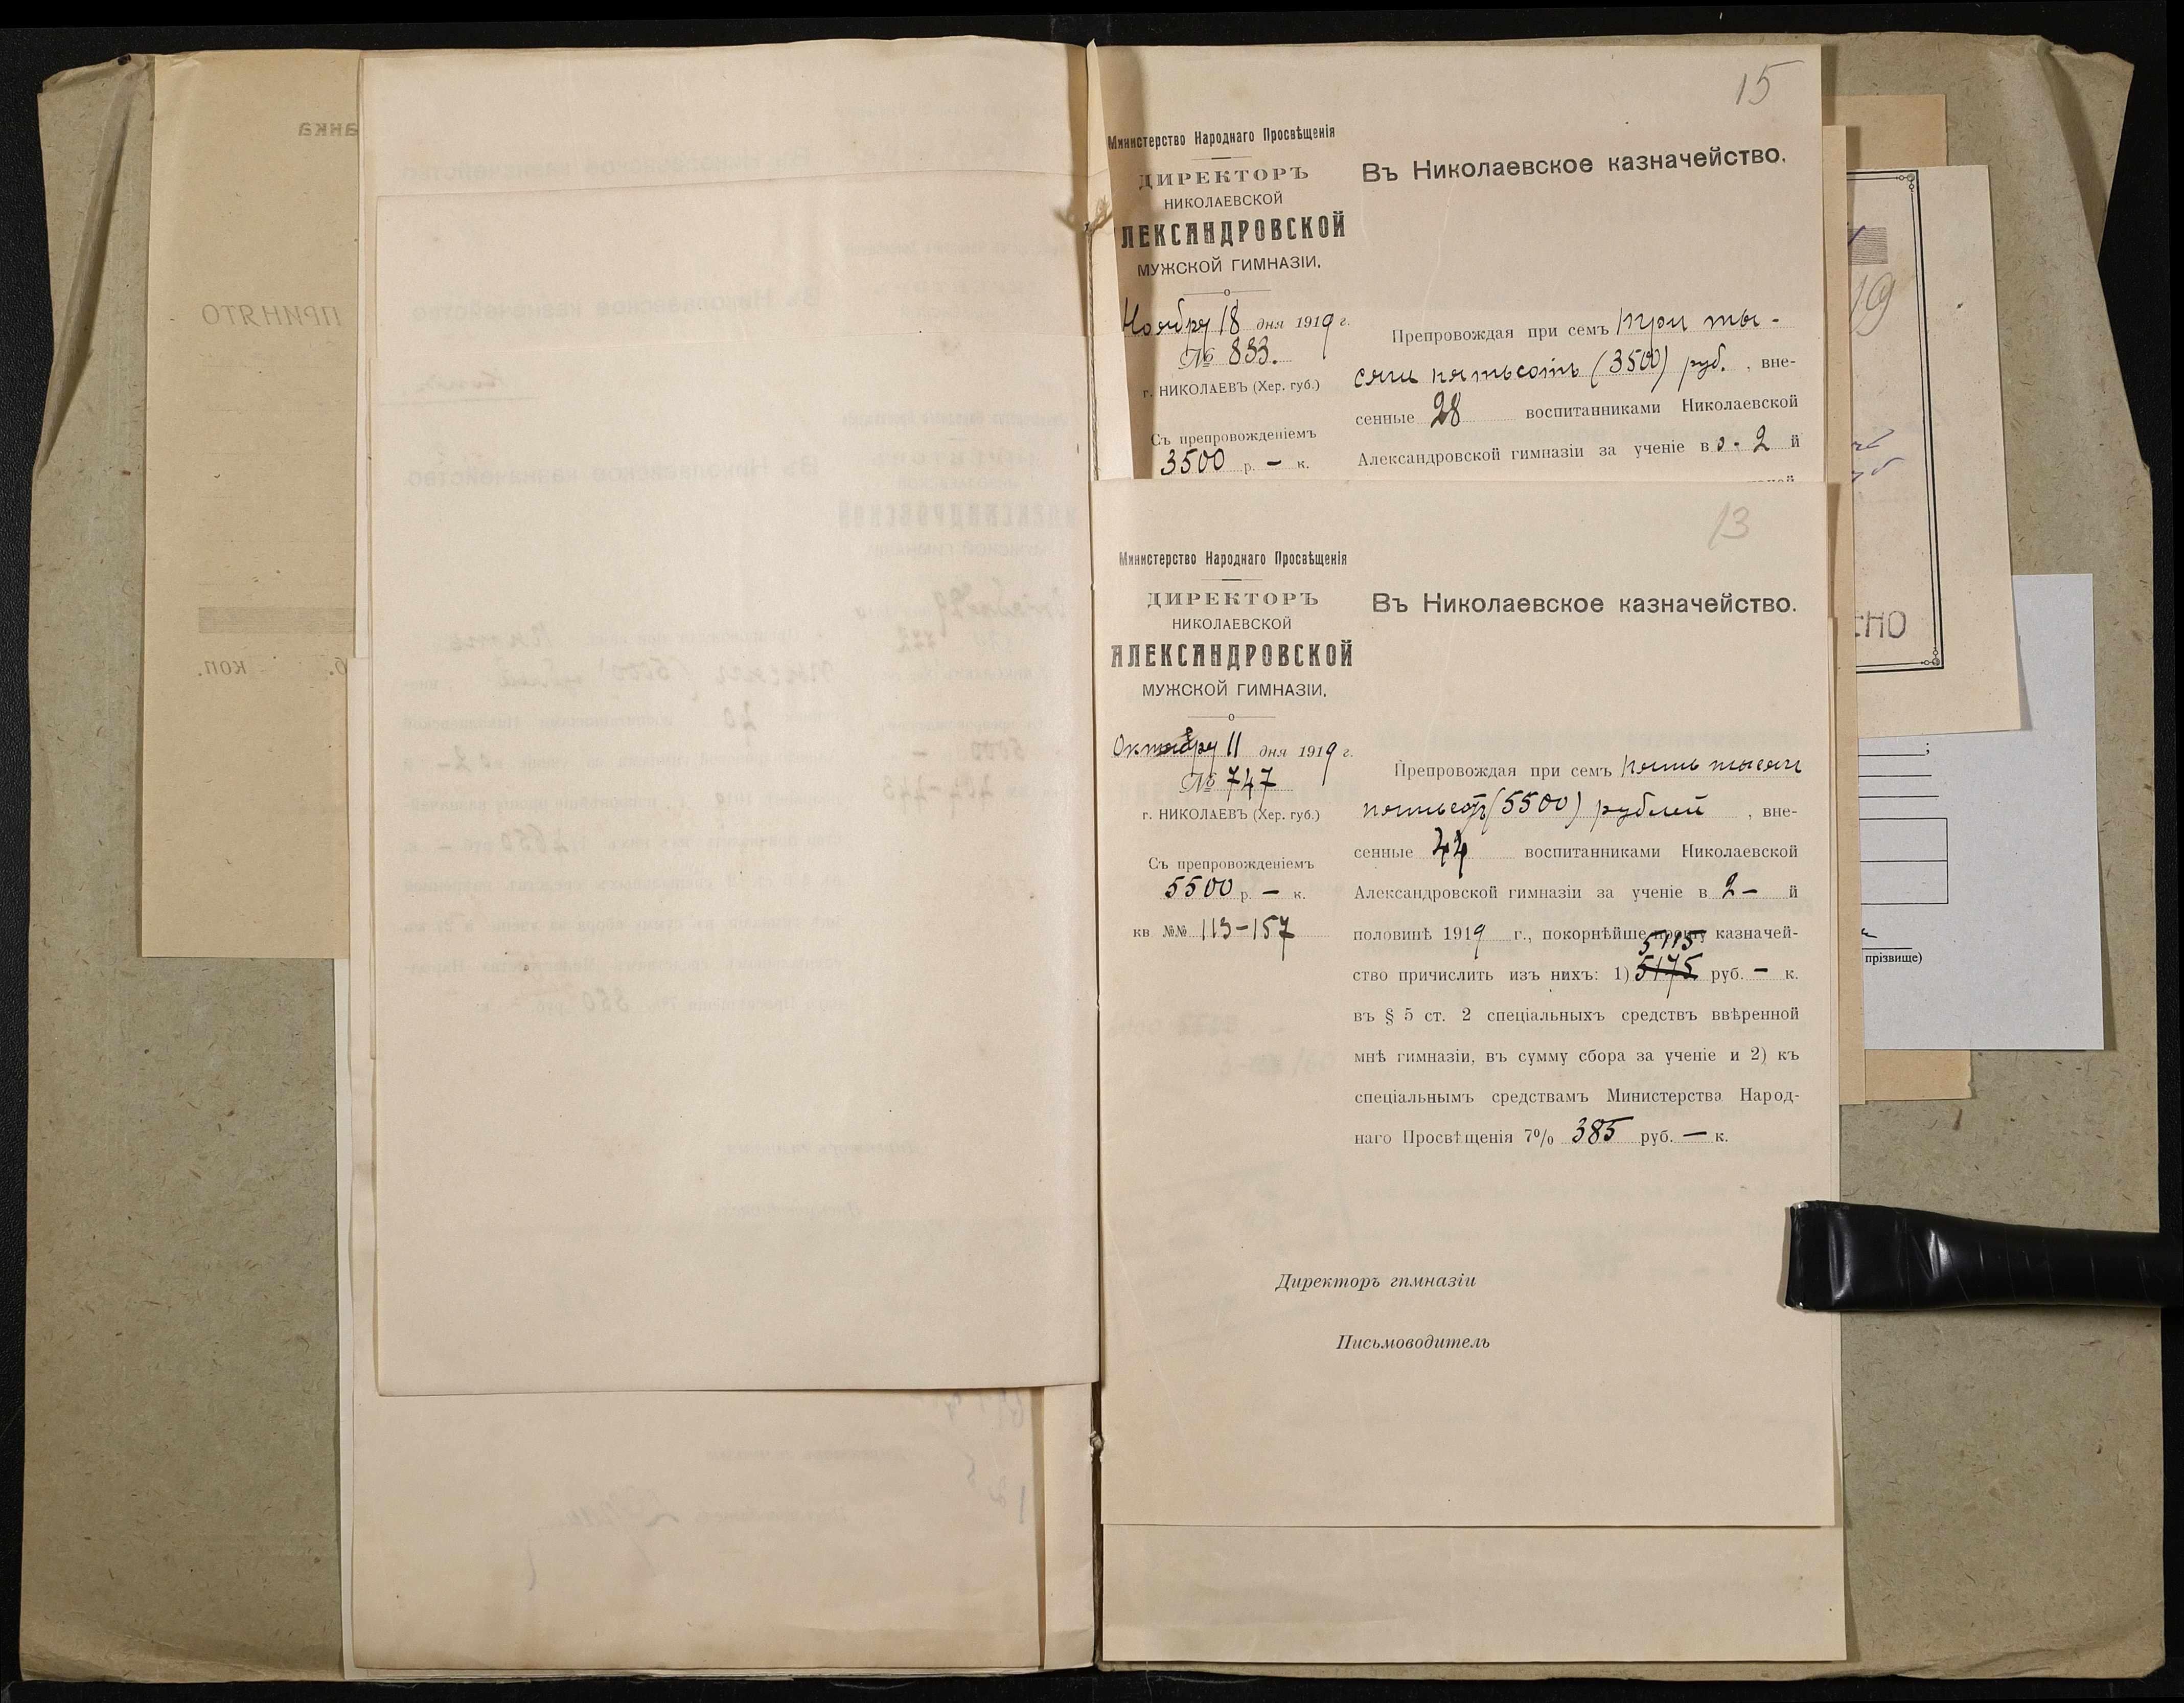 15
Министерство Народнаго Просвѣщенія
ДИРЕКТОРЪ
НИКОЛАЕВСКОЙ
ЛЕКСАНДРОВСКОЙ
МУЖСКОЙ ГИМНАЗІИ.
Ноября 18 дня 1919 г.
№ 833.
г. НИКОЛАЕВЪ (Хер. губ.)
Съ препровожденіемъ
3500 р. — к.
Въ Николаевское казначейство.
Препровождая при семъ три ты-
сячи пятьсотъ (3500) руб. , вне-
сенные 28 воспитанниками Николаевской
Александровской гимназіи за ученіе во - 2 й
13
Министерство Народнаго Просвѣщенія
ДИРЕКТОРЪ
НИКОЛАЕВСКОЙ
АЛЕКСАНДРОВСКОЙ
МУЖСКОЙ ГИМНАЗІИ.
Октября 11 дня 1919 г.
№ 747
г. НИКОЛАЕВЪ (Хер. губ.)
Съ препровожденіемъ
5500 р. — к.
кв №№ 113-157
Въ Николаевское казначейство.
Препровождая при семъ пять тысячъ
пятьсотъ (5500) рублей , вне-
сенные 44 воспитанниками Николаевской
Александровской гимназіи за ученіе в 2 — й
половинѣ 1919 г., покорнѣйше прошу казначей-
5115
ство причислить изъ нихъ: 1) 5175 руб. — к.
въ § 5 ст. 2 спеціальныхъ средствъ ввѣренной
мнѣ гимназіи, въ сумму сбора за ученіе и 2) къ
спеціальнымъ средствамъ Министерства Народ-
наго Просвѣщенія 7% 385 руб. — к.
Директоръ гимназіи
Письмоводитель
19
прізвище)
ПРИНЯТО
коп.